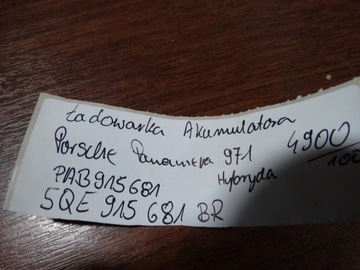 Ładowarka Akumulatora
Porsche Panamera 971 4900
PAB915681 Hybryda 100
5QE 915 681 BR